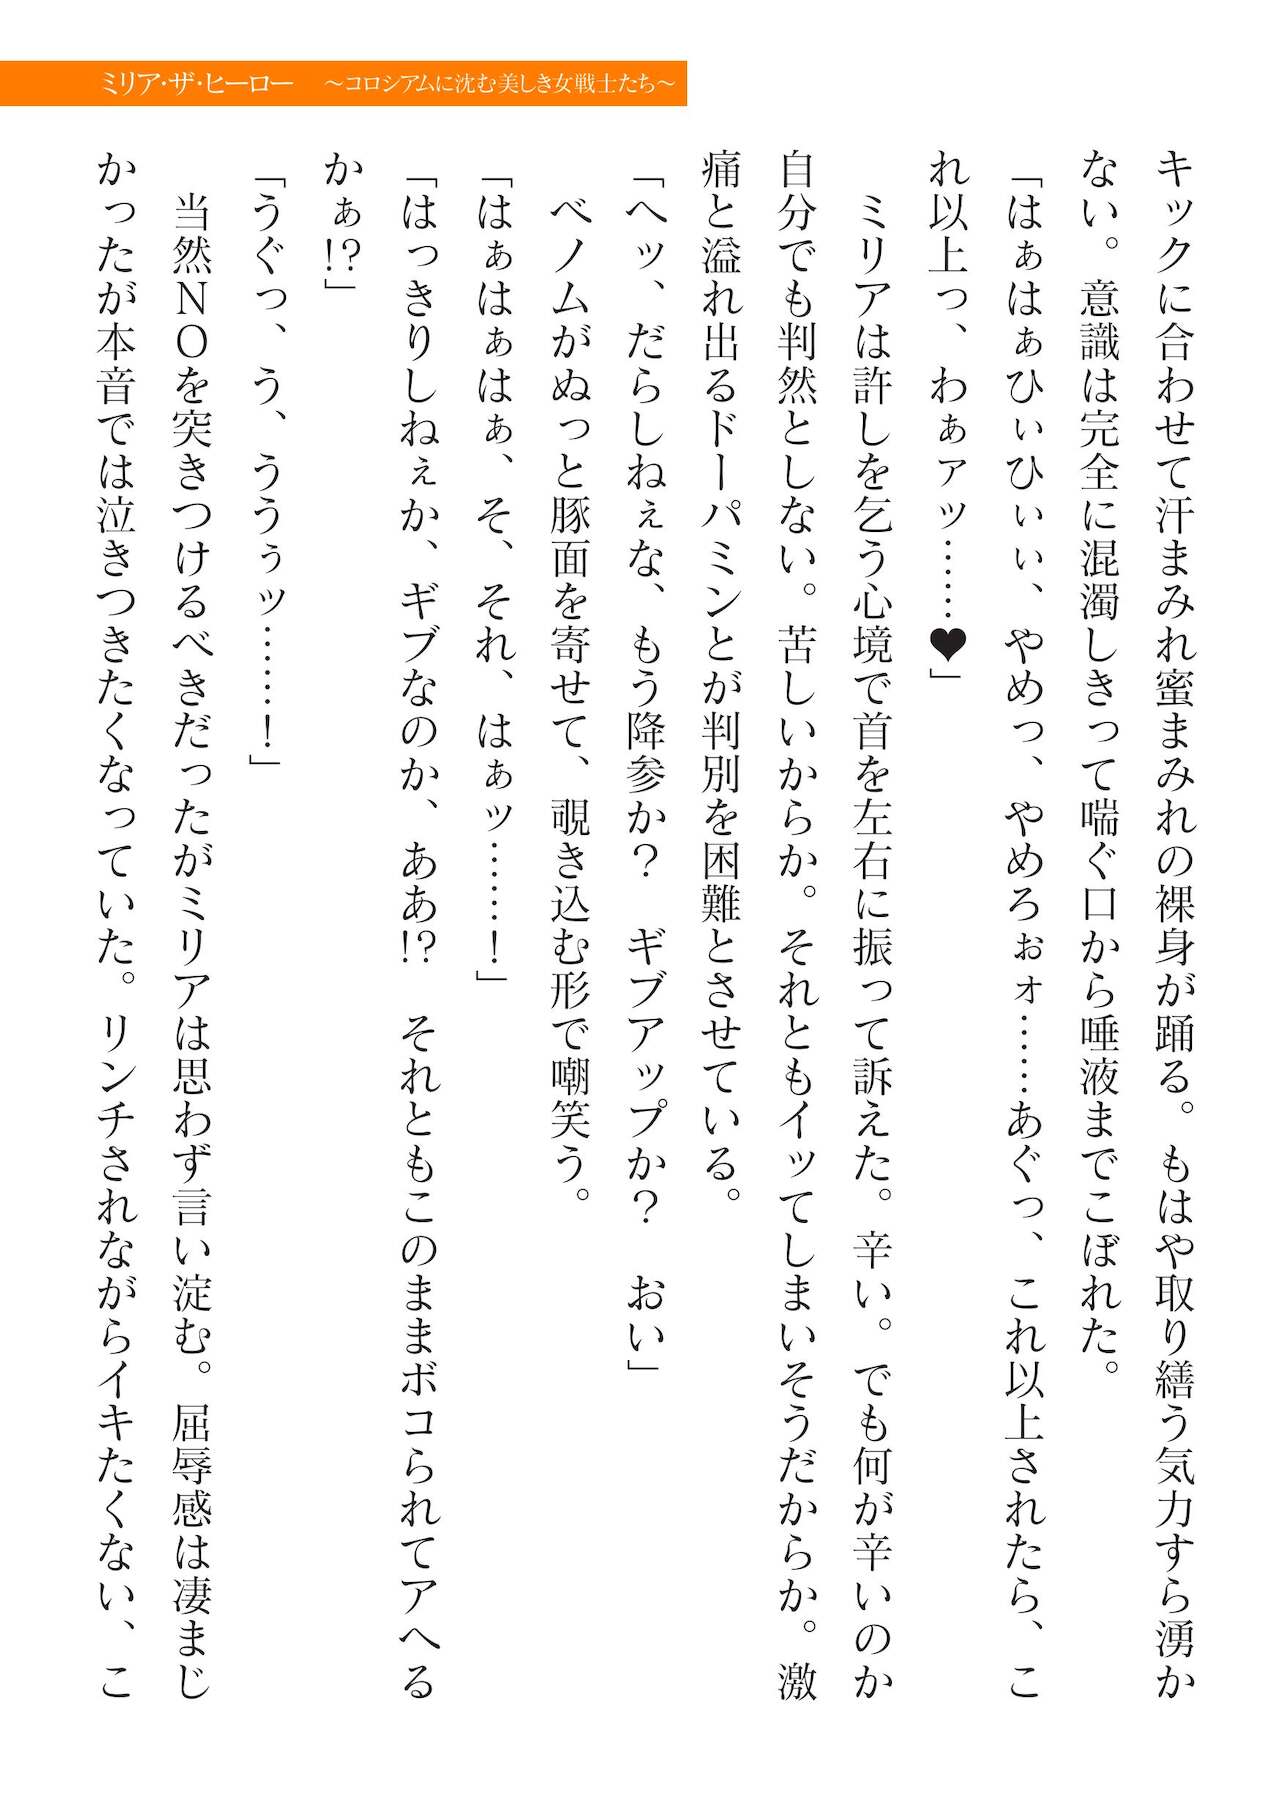 ミリア・ザ・ヒーロー　～コロシアムに沈む美しき女戦士たち～
キックに合わせて汗まみれ蜜まみれの裸身が踊る。もはや取り繕う気力すら湧か
ない。意識は完全に混濁しきって喘ぐ口から唾液までこぼれた。
「はぁはぁひぃひぃぃ、やめっ、やめろぉォ……あぐっ、これ以上されたら、こ
れ以上っ、わぁァッ……♥」
　ミリアは許しを乞う心境で首を左右に振って訴えた。辛い。でも何が辛いのか
自分でも判然としない。苦しいからか。それともイッてしまいそうだからか。激
痛と溢れ出るドーパミンとが判別を困難とさせている。
「へッ、だらしねぇな、もう降参か？　ギブアップか？　おい」
　ベノムがぬっと豚面を寄せて、覗き込む形で嘲笑う。
「はぁはぁはぁ、そ、それ、はぁッ……！」
「はっきりしねぇか、ギブなのか、ああ!?　それともこのままボコられてアへる
かぁ!?」
「うぐっ、う、ううぅッ……！」
　当然ＮＯを突きつけるべきだったがミリアは思わず言い淀む。屈辱感は凄まじ
かったが本音では泣きつきたくなっていた。リンチされながらイキたくない、こ